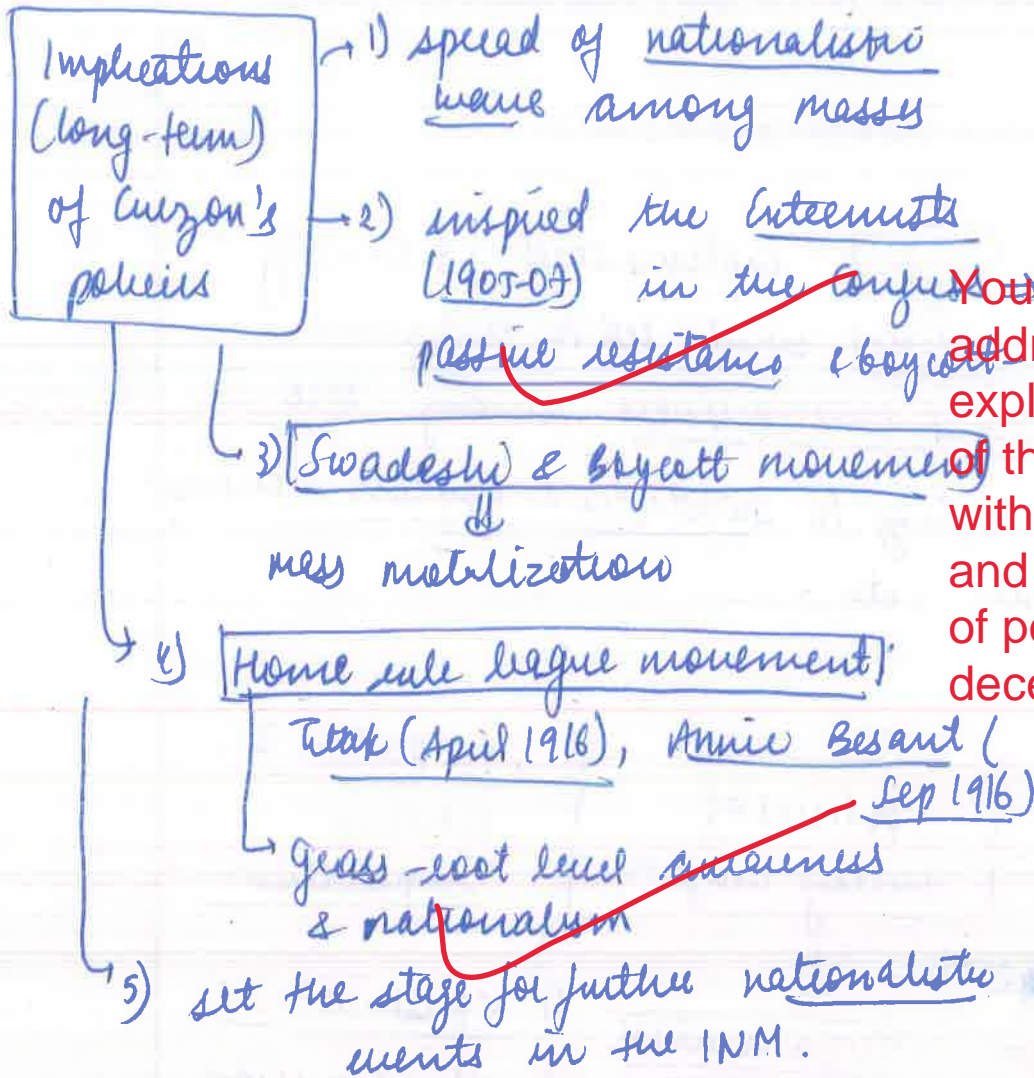 Implications
(long-term)
of Curzon's
policies
1) spread of nationalistic
wave among masses
2) inspired the Extremists
(1905-07) in the Congress →
passive resistance & boycott
3) Swadeshi & Boycott movement
⇓
mass mobilization
4) Home rule league movement
Tilak (April 1916), Annie Besant (
Sep 1916)
grass-root level awareness
& nationalism
5) set the stage for further nationalistic
events in the INM.
You
addr
expl
of th
with
and
of po
dece